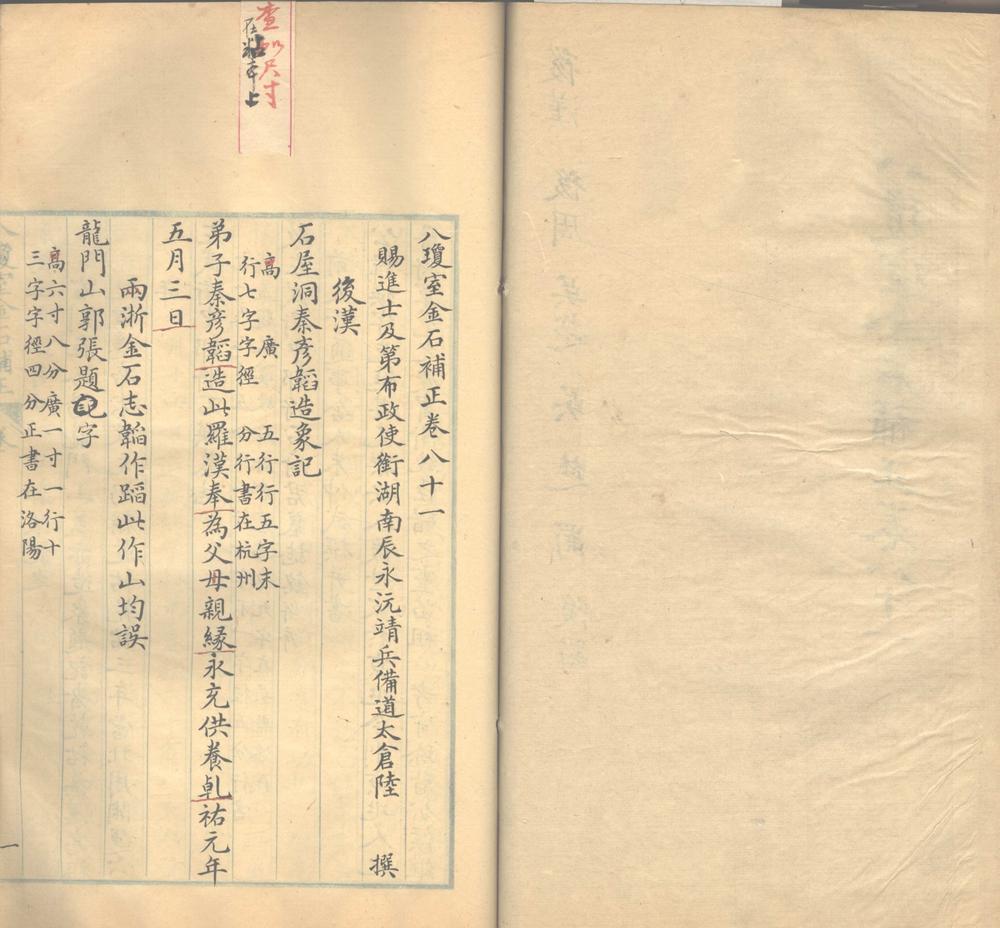 八瓊室金石補正卷八十一
賜進士及第布政使銜湖南辰永沅靖兵備道太倉陸 撰
後漢
石屋洞秦彥韜造象記
高 廣 五行行五字末
行七字字徑 分行書在杭州
弟子秦彥韜造此羅漢奉為父母親緣永充供養乹祐元年
五月三日
兩浙金石志韜作蹈此作山均誤
龍門山郭張題字
高六寸八分廣一寸一行十
三字字徑四分正書在洛陽
一
查明尺寸
在粘本上